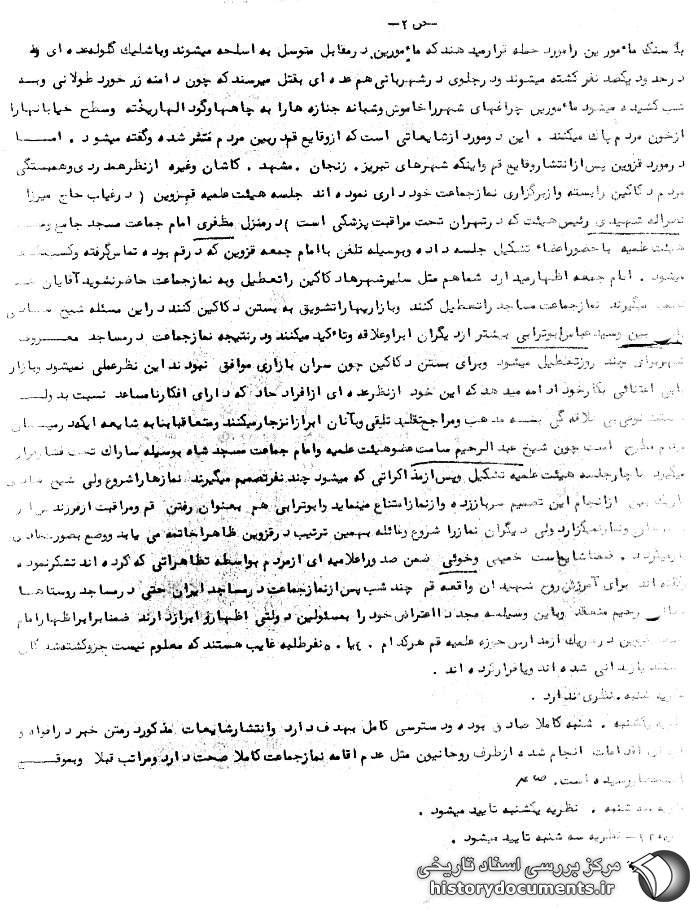 ـ ص ۲ ـ
با سنگ مأمورین را مورد حمله قرار میدهند که مأمورین در مقابل متوسل به اسلحه میشوند و با شلیک گلوله عده ای
در حدود یکصد نفر کشته میشوند و در جلوی در شهربانی هم عده ای بقتل میرسند که چون دامنه زد خورد طولانی وبه
شب کشیده میشود مأمورین چراغهای شهر را خاموش وشبانه جنازه ها را به چاهها وگودالها ریخته وسطح خیابانها را
از خون مردم پاک میکنند . این دو مورد از شایعاتی است که از وقایع قم در بین مردم منتشر شده وگفته میشود . امـا
در مورد قزوین پس از انتشار وقایع قم واینکه شهرهای تبریز . زنجان . مشهد . کاشان وغیره از نظر همدردی وهمبستگی
مردم دکاکین را بسته واز برگزاری نماز جماعت خودداری نموده اند جلسه هیئت علمیه قـزوین ( در غیاب حاج میرزا
نصراله شهیدی رئیس هیئت که در تهران تحت مراقبت پزشکی است ) در منزل مظفری امام جماعت مسجد جامع
هیئت علمیه با حضور اعضاء تشکیل جلسه داده وبوسیله تلفن با امام جمعه قزوین که در قم بوده تماس گرفته
میشود . امام جمعه اظهار میدارد شما هم مثل سایر شهرها دکاکین را تعطیل وبه نماز جماعت حاضر نشوید آقایان
میگیرند نماز جماعت مساجد را تعطیل کنند وبازاریها را تشویق به بستن دکاکین کنند در این مسئله شیخ
وسید عباس ابوترابی بیشتر از دیگران ابراز علاقه وتأکید میکنند ودر نتیجه نماز جماعت در مساجد معـروف
شهر برای چند روز تعطیل میشود وبرای بستن دکاکین چون سران بازاری موافق نبودند این نظر عملی نمیشود وبازار
بی اعتنائی بکار خود ادامه میدهد که این خود از نظر عده ای از افراد حاد که دارای افکار نامساعد نسبت بدولت
علاقه گی بسه مذهب ومراجع تقلید تلقی وبآنان ابراز انزجار میکنند ومتعاقبا بنا به شایعه ایکه در میـان
مردم مطرح است چون شیخ عبدالرحیم سامت عضو هیئت علمیه وامام جماعت مسجد شاه بوسیله ساواک تحت فشار قرار
میگیرد ناچار جلسه هیئت علمیه تشکیل وپس از مذاکراتی که میشود چند نفر تصمیم میگیرند نمازها را شروع ولی شیخ
از انجام این تصمیم سر باز زده واز نماز امتناع مینماید وابوترابی هم بعنوان رفتن قم ومراقبت از فرزند
ونماز نمیگزارد ولی دیگران نماز را شروع وغائله بهمین ترتیب در قزوین ظاهرا خاتمه می یابد ووضع بصورت
. ضمنا شایع است خمینی وخوئی ضمن صدور اعلامیه ای از مردم بواسطه تظاهراتی که کرده اند تشکر نموده
وگفته اند برای آمرزش روح شهیدان واقعه قم چند شب پس از نماز جماعت در مساجد ایران حتی در مساجد روستاها
ترحیم منعقد وباین وسیله مجددا اعتراض خود را بمسئولین دولتی اظهار و ابراز دارند ضمنا برابر اظهار امام
قزوین در هر یک از مدارس حوزه علمیه قم هرکدام ۴۰ یا ۵۰ نفر طلبه غایب هستند که معلوم نیست جزو کشته شدگان
هستند یا زندانی شده اند ویا فرار کرده اند .
نظریه شنبه . نظری ندارد .
نظریه یکشنبه . شنبه کاملا صادق بوده ودسترسی کامل بهدف دارد وانتشار شایعات مذکور در متن خبر در افواه و
اقدامات انجام شده از طرف روحانیون مثل عدم اقامه نماز جماعت کاملا صحت دارد ومراتب قبلا وبموقـع
رسیده است .
نظریه سه شنبه . نظریه یکشنبه تایید میشود .
ـ نظریه سه شنبه تایید میشود .
مرکز بررسی اسناد تاریخی
historydocuments.ir